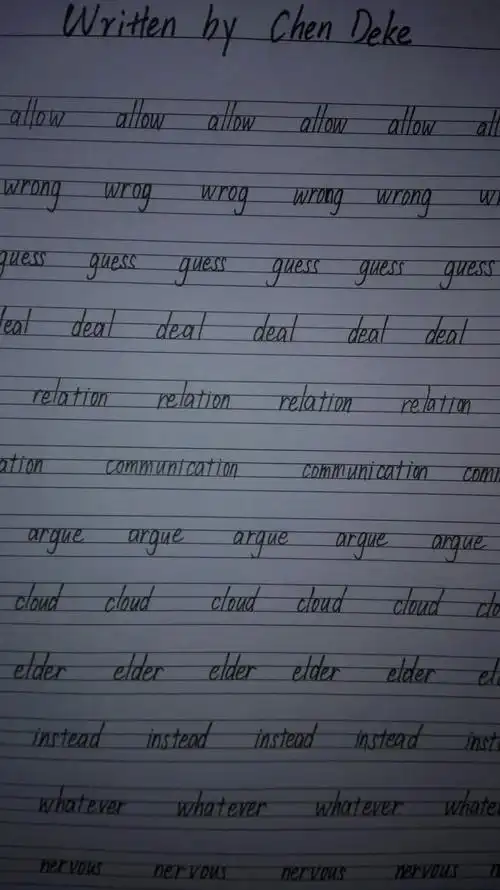 Written by Chen Deke
allow allow allow allow allow all
wrong wrog wrog wrong wrong w
guess guess guess guess guess guess
deal deal deal deal deal deal
relation relation relation relation
ation communication communication com
argue argue argue argue argue
cloud cloud cloud cloud cloud clo
elder elder elder elder elder el
instead instead instead instead inst
whatever whatever whatever whate
nervous nervous nervous nervous n